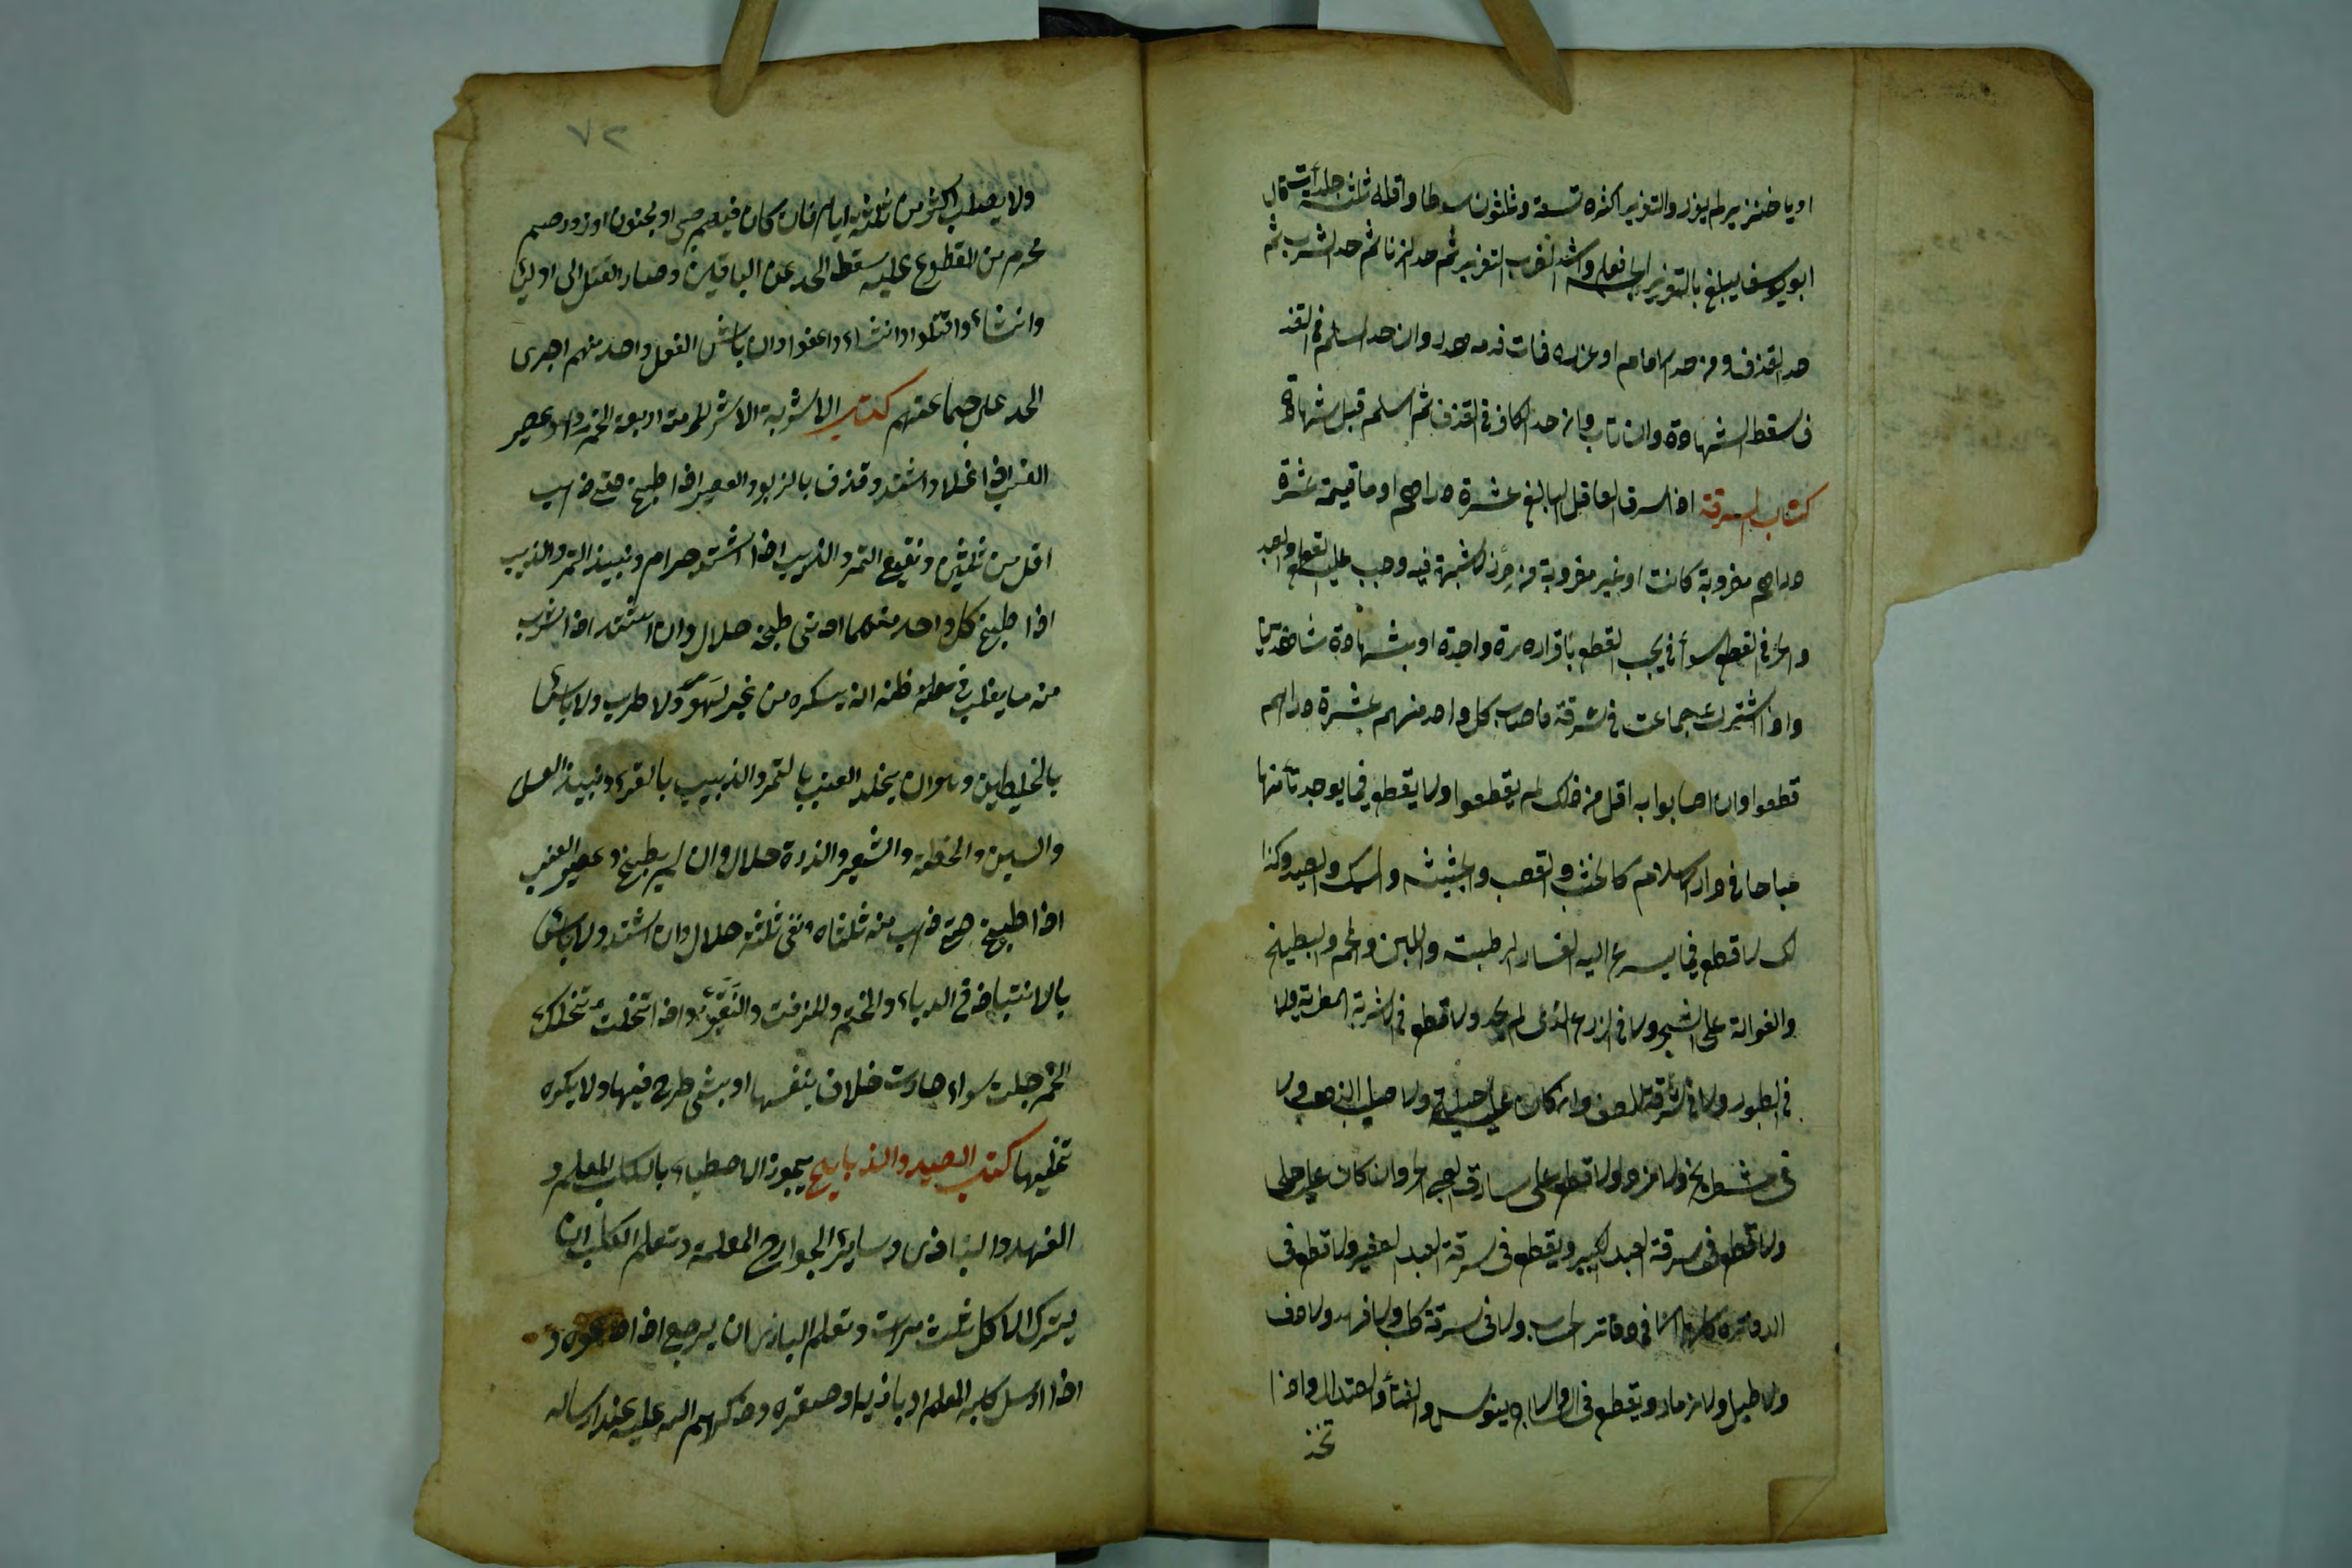 او يا خنزير لم يعزر والتعزير اكثره تسعة وثلثون سوطا واقله ثلث جلدات قال
ابو يوسف يبلغ بالتعزير واشد الضرب التعزير ثم حد الزنا ثم حد الشرب ثم
حد القذف ومن حد الامام او عزره فمات فدمه هدر وان حد المسلم فى القذ
ف سقط الشهادة وان تاب وان حد الكافر فى القذف ثم اسلم قبل شهادة
كتاب السرقة اذا سرق العاقل البالغ عشرة دراهم او ما قيمة عشرة
دراهم مضروبة كانت او غير مضروبة من حرز لا شبهة فيه وجب عليه القطع والعبد
والحر فى القطع سوأ فى يجب القطع باقراره مرة واحدة او بشهادة شاهدين
واذا اشترك جماعت فى سرقة فاصاب كل واحد منهم عشرة دراهم
قطعوا وان اصابوا به اقل من ذلك لم يقطعوا ولا يقطع فيما يوجد تافها
مباحا فى دار الاسلام كالخشب والقصب والحشيش والسمك والصيد وكذا
لك لا قطع فيما يسرع اليه الفساد لرطبت واللبن واللحم والبطيخ
والفوالة على الشجر ولا فى الزرع الذى لم يحصد ولا قطع فى الاشربة المطربة ولا
فى الطنبور ولا فى سرقة المصحف وان كان عليه حلية ولا صليب الذهب ولا
فى شطرنج ولا نرد ولا قطع على سارق الصبى الحر وان كان عليه حلى
ولا قطع فى سرقة العبد الكبير ويقطع فى سرقة العبد الصغير ولا قطع فى
الدفاتر كلها الا فى دفاتر الحساب ولا فى سرقة كلب ولا فهد ولا دف
ولا طبل ولا مزمار ويقطع فى الساج والقنأ والصندل واذا
تخذ
٧٢
ولا يصلب اكثر من ثلثة ايام فان كان فيهم صبى او مجنون او ذو رحم
محرم من المقطوع عليه سقط الحد عن الباقين وصار القتل الى اوليا
وان شاء واقتلوا وان شاء واعفوا وان باشر الفعل واحد منهم اجرى
الحد على جماعتهم كتاب الاشربة الاشربة المحرمة اربعة الخمر وهو عصير
العنب اذا غلا واشتد وقذف بالزبد والعصير اذا طبخ حتى ذهب
اقل من ثلثين ونقيع التمر والزبيب اذا اشتد حرام ونبيذ التمر والزبيب
اذا طبخ كل واحد منهما ادنى طبخة حلال وان اشتد اذا شرب
منه ما يغلب فى ظنه انه يسكره من غير لهو ولا طرب ولا باس
بالخليطين وهو ان يخلد العنب بالتمر والزبيب بالتمر ونبيذ العسل
والتين والحنطة والشعير والذرة حلال وان لم يطبخ وعصير العنب
اذا طبخ حتى ذهب منه ثلثاه وبقى ثلثه حلال وان اشتد ولا باس
بالانتباذ فى الدباء والحنتم والمزفت والنقير واذا تخللت
الخمر حلت سواء صارت خلا بنفسها او بشى طرح فيها ولا يكره
تخليها كتاب الصيد والذبايح يجوز الاصطياد بالكلب المعلم و
الفهد والبازى وساير الجوارح المعلمة وتعلم الكلب ان
يترك الاكل ثلث مرات وتعلم البازى ان يرجع اذا دعوه و
اذا ارسل كلبه المعلم او بازيه او صقره وذكر اسم الله عليه عند ارساله